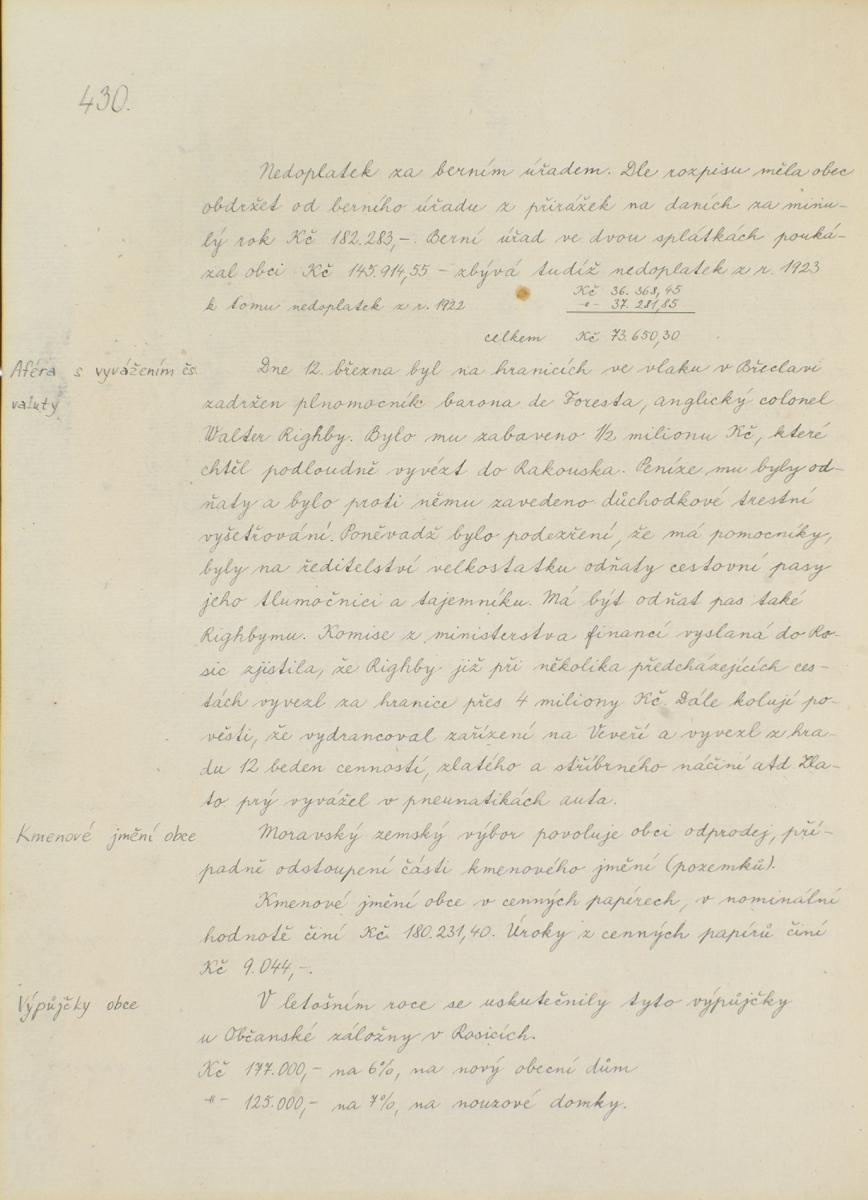 430.
Nedoplatek za berním úřadem. Dle rozpisu měla obec
obdržet od berního úřadu z přirážek na daních za minu-
lý rok Kč 182.283,-. Berní úřad ve dvou splátkách pouká-
zal obci Kč 145.914,55 - zbývá tudíž nedoplatek z r. 1923
Kč 36.368,45
k tomu nedoplatek z r. 1922 -"- 37.281,85
celkem Kč 73.650,30
Aféra s vyvážením čs.
valuty
Dne 12. března byl na hranicích ve vlaku v Břeclavi
zadržen plnomocník barona de Foresta, anglický colonel
Walter Righby. Bylo mu zabaveno 1/2 milionu Kč, které
chtěl podloudně vyvézt do Rakouska. Peníze mu byly od-
ňaty a bylo proti němu zavedeno důchodkové trestní
vyšetřování. Poněvadž bylo podezření, že má pomocníky,
byly na ředitelství velkostatku odňaty cestovní pasy
jeho tlumočnici a tajemníku. Má být odňat pas také
Righbymu. Komise z ministerstva financí vyslaná do Ro-
sic zjistila, že Righby již při několika předcházejících ces-
tách vyvezl za hranice přes 4 miliony Kč. Dále kolují po-
věsti, že vydrancoval zařízení na Veveří a vyvezl z hra-
du 12 beden cenností, zlatého a stříbrného náčiní atd. Zla-
to prý vyvážel v pneumatikách auta.
Kmenové jmění obce
Moravský zemský výbor povoluje obci odprodej, pří-
padně odstoupení části kmenového jmění (pozemků).
Kmenové jmění obce v cenných papírech, v nominální
hodnotě činí Kč 180.231,40. Úroky z cenných papírů činí
Kč 9.044,-.
Výpůjčky obce
V letošním roce se uskutečnily tyto výpůjčky
u Občanské záložny v Rosicích.
Kč 177.000,- na 6%, na nový obecní dům
-"- 125.000,- na 7%, na nouzové domky.